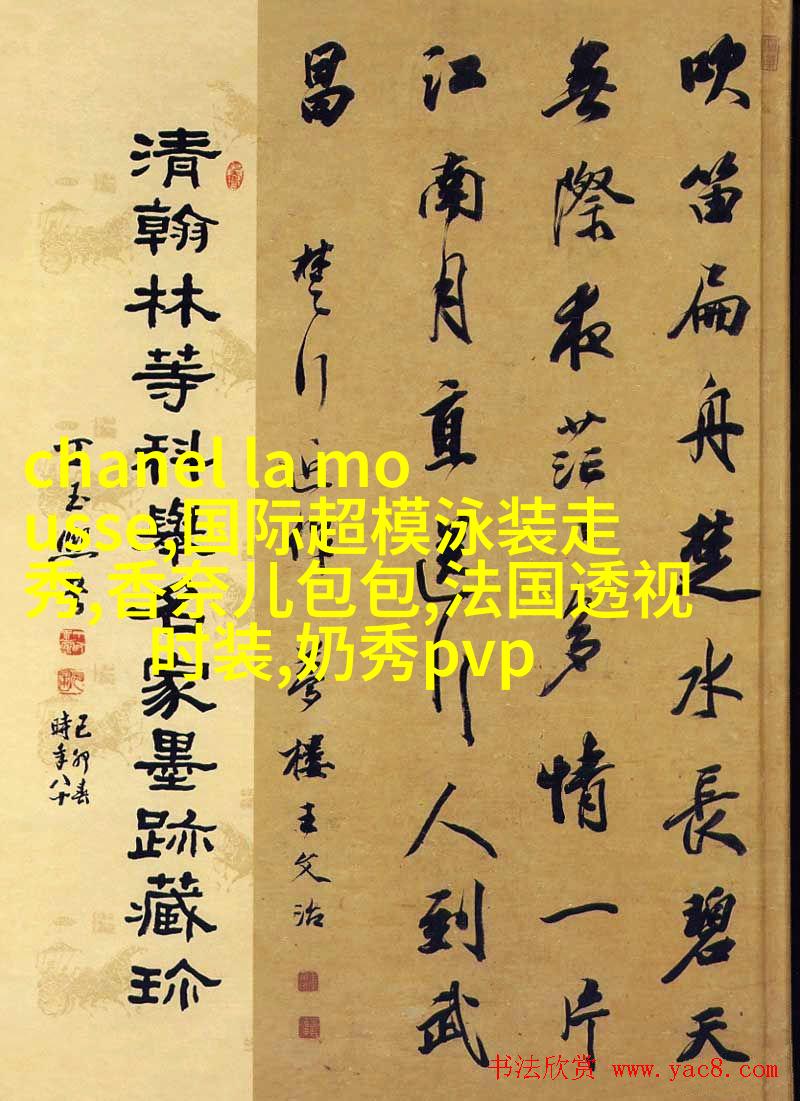 吹笛扁舟楚水長碧天
無際夜茫茫多情一片
江南月直送行人到武
昌 楚行近作 夢樓王文治
清翰林等科舉名家墨跡藏珍
丁玉
己卯春
時年八十
chanel la mo
usse,国际超模泳装走
秀,香奈儿包包,法国透视
时装,奶秀pvp
书法欣赏 www.yac8.com